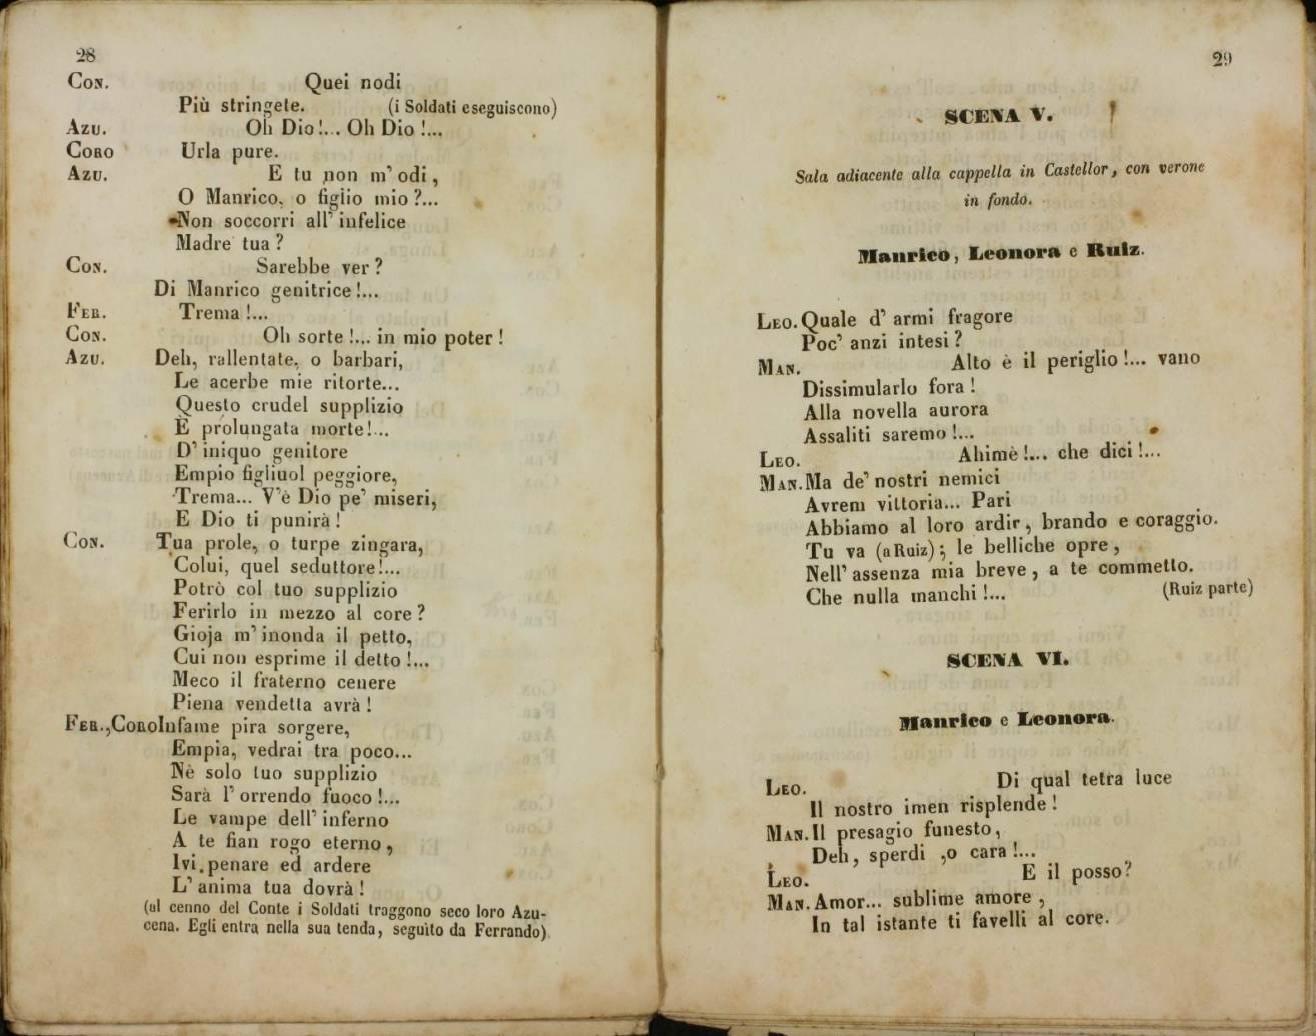 28
CON. Quei nodi
Più stringete. (i Soldati eseguiscono)
AZU. Oh Dio!... Oh Dio!...
CORO Urla pure.
AZU. E tu non m' odi,
O Manrico, o figlio mio?...
Non soccorri all' infelice
Madre tua?
CON. Sarebbe ver?
Di Manrico genitrice!...
FER. Trema!...
CON. Oh sorte!... in mio poter!
AZU. Deh, rallentate, o barbari,
Le acerbe mie ritorte...
Questo crudel supplizio
È prolungata morte!...
D' iniquo genitore
Empio figliuol peggiore,
Trema... V'è Dio pe' miseri,
E Dio ti punirà!
CON. Tua prole, o turpe zingara,
Colui, quel seduttore!...
Potrò col tuo supplizio
Ferirlo in mezzo al core?
Gioja m' inonda il petto,
Cui non esprime il detto!...
Meco il fraterno cenere
Piena vendetta avrà!
FER., CORO Infame pira sorgere,
Empia, vedrai tra poco...
Nè solo tuo supplizio
Sarà l' orrendo fuoco!...
Le vampe dell' inferno
A te fian rogo eterno,
Ivi penare ed ardere
L' anima tua dovrà!
(al cenno del Conte i Soldati traggono seco loro Azu-
cena. Egli entra nella sua tenda, seguìto da Ferrando)
29
SCENA V.
Sala adiacente alla cappella in Castellor, con verone
in fondo.
Manrico, Leonora e Ruiz.
LEO. Quale d' armi fragore
Poc' anzi intesi?
MAN. Alto è il periglio!... vano
Dissimularlo fora!
Alla novella aurora
Assaliti saremo!...
LEO. Ahimè!... che dici!...
MAN. Ma de' nostri nemici
Avrem vittoria... Pari
Abbiamo al loro ardir, brando e coraggio.
Tu va (a Ruiz); le belliche opre,
Nell' assenza mia breve, a te commetto.
Che nulla manchi!... (Ruiz parte)
SCENA VI.
Manrico e Leonora.
LEO. Di qual tetra luce
Il nostro imen risplende!
MAN. Il presagio funesto,
Deh, sperdi ,o cara!...
LEO. E il posso?
MAN. Amor... sublime amore,
In tal istante ti favelli al core.